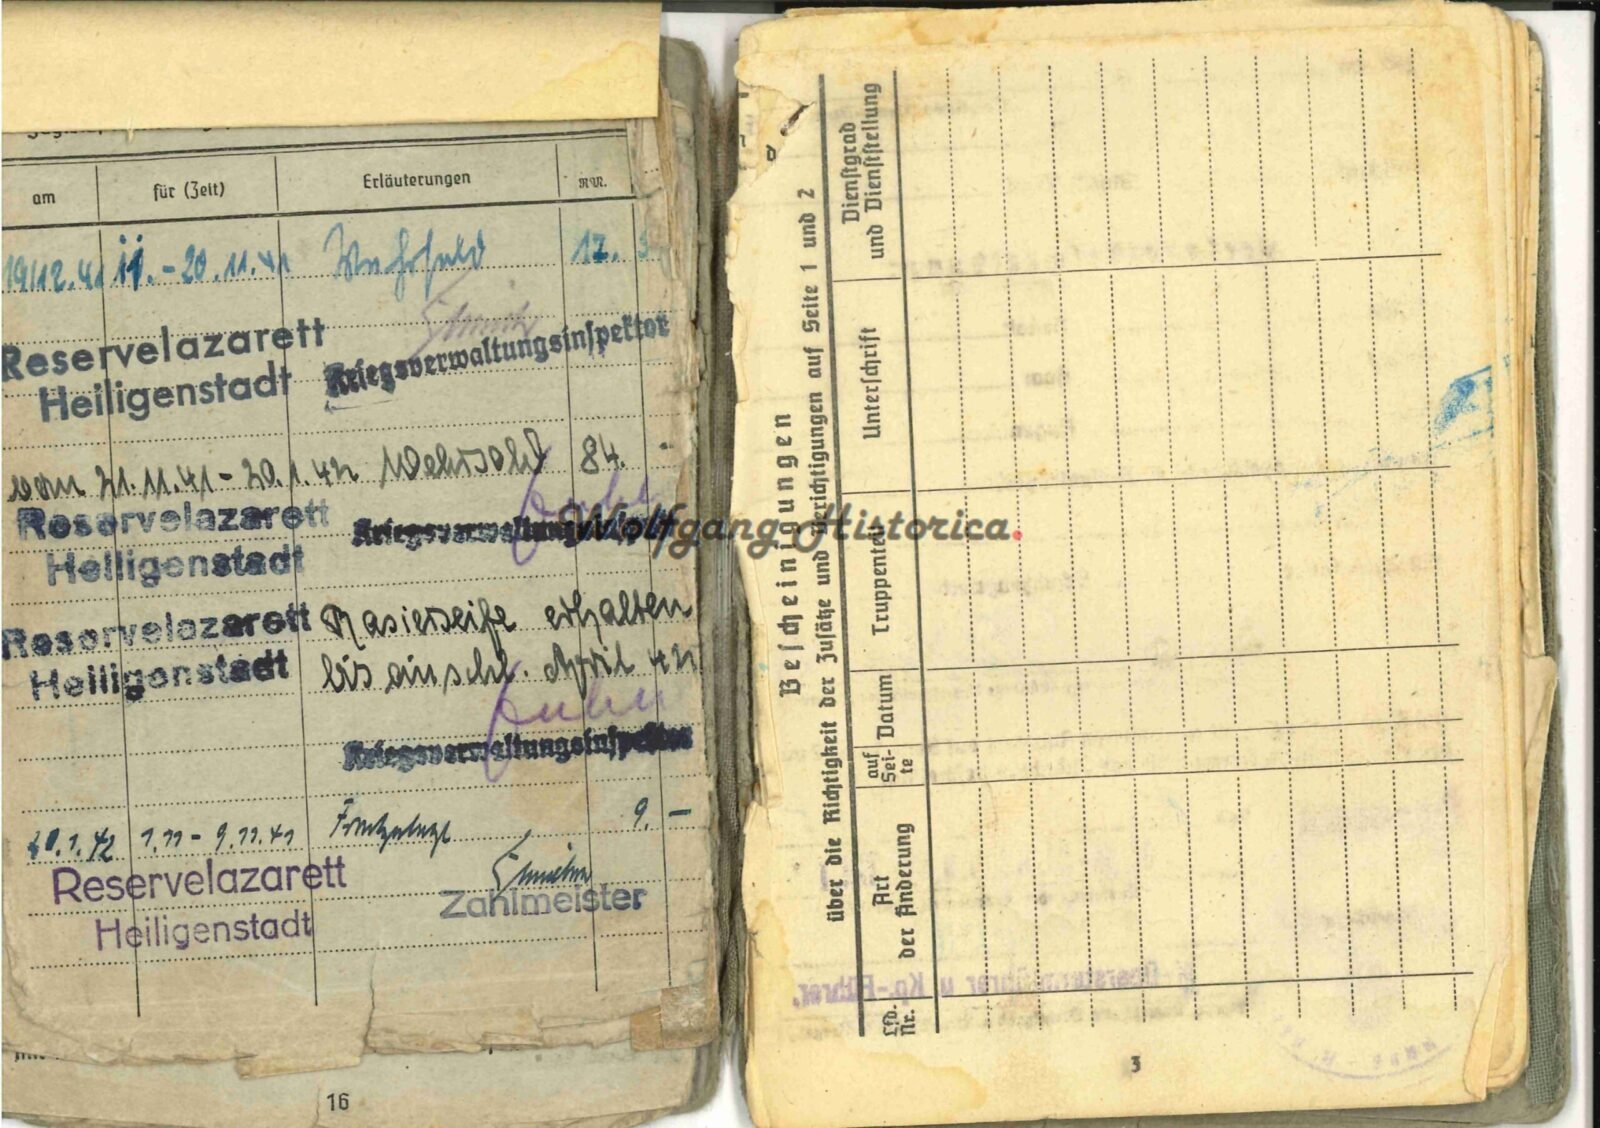 am für (Zeit) Erläuterungen RM.
19.12.41 11.-20.11.41 Wehrsold 12.
Reservelazarett
Heiligenstadt
Kriegsverwaltungsinspektor
vom 21.11.41-20.1.42 Wehrsold 84. -
Reservelazarett
Heiligenstadt
Kriegsverwaltungsinspektor
Reservelazarett
Heiligenstadt
Rasierseife erhalten
bis einschl. April 42
Kriegsverwaltungsinspektor
20.1.42 1.11-9.11.41 Frontzulage 9. -
Reservelazarett
Heiligenstadt
Zahlmeister
16
Wolfgang Historica.
Bescheinigungen
über die Richtigkeit der Zusätze und Berichtigungen auf Seite 1 und 2
Lfd. Nr.
Art der Änderung
auf Sei-te
Datum
Truppenteil
Unterschrift
Dienstgrad und Dienststellung
3